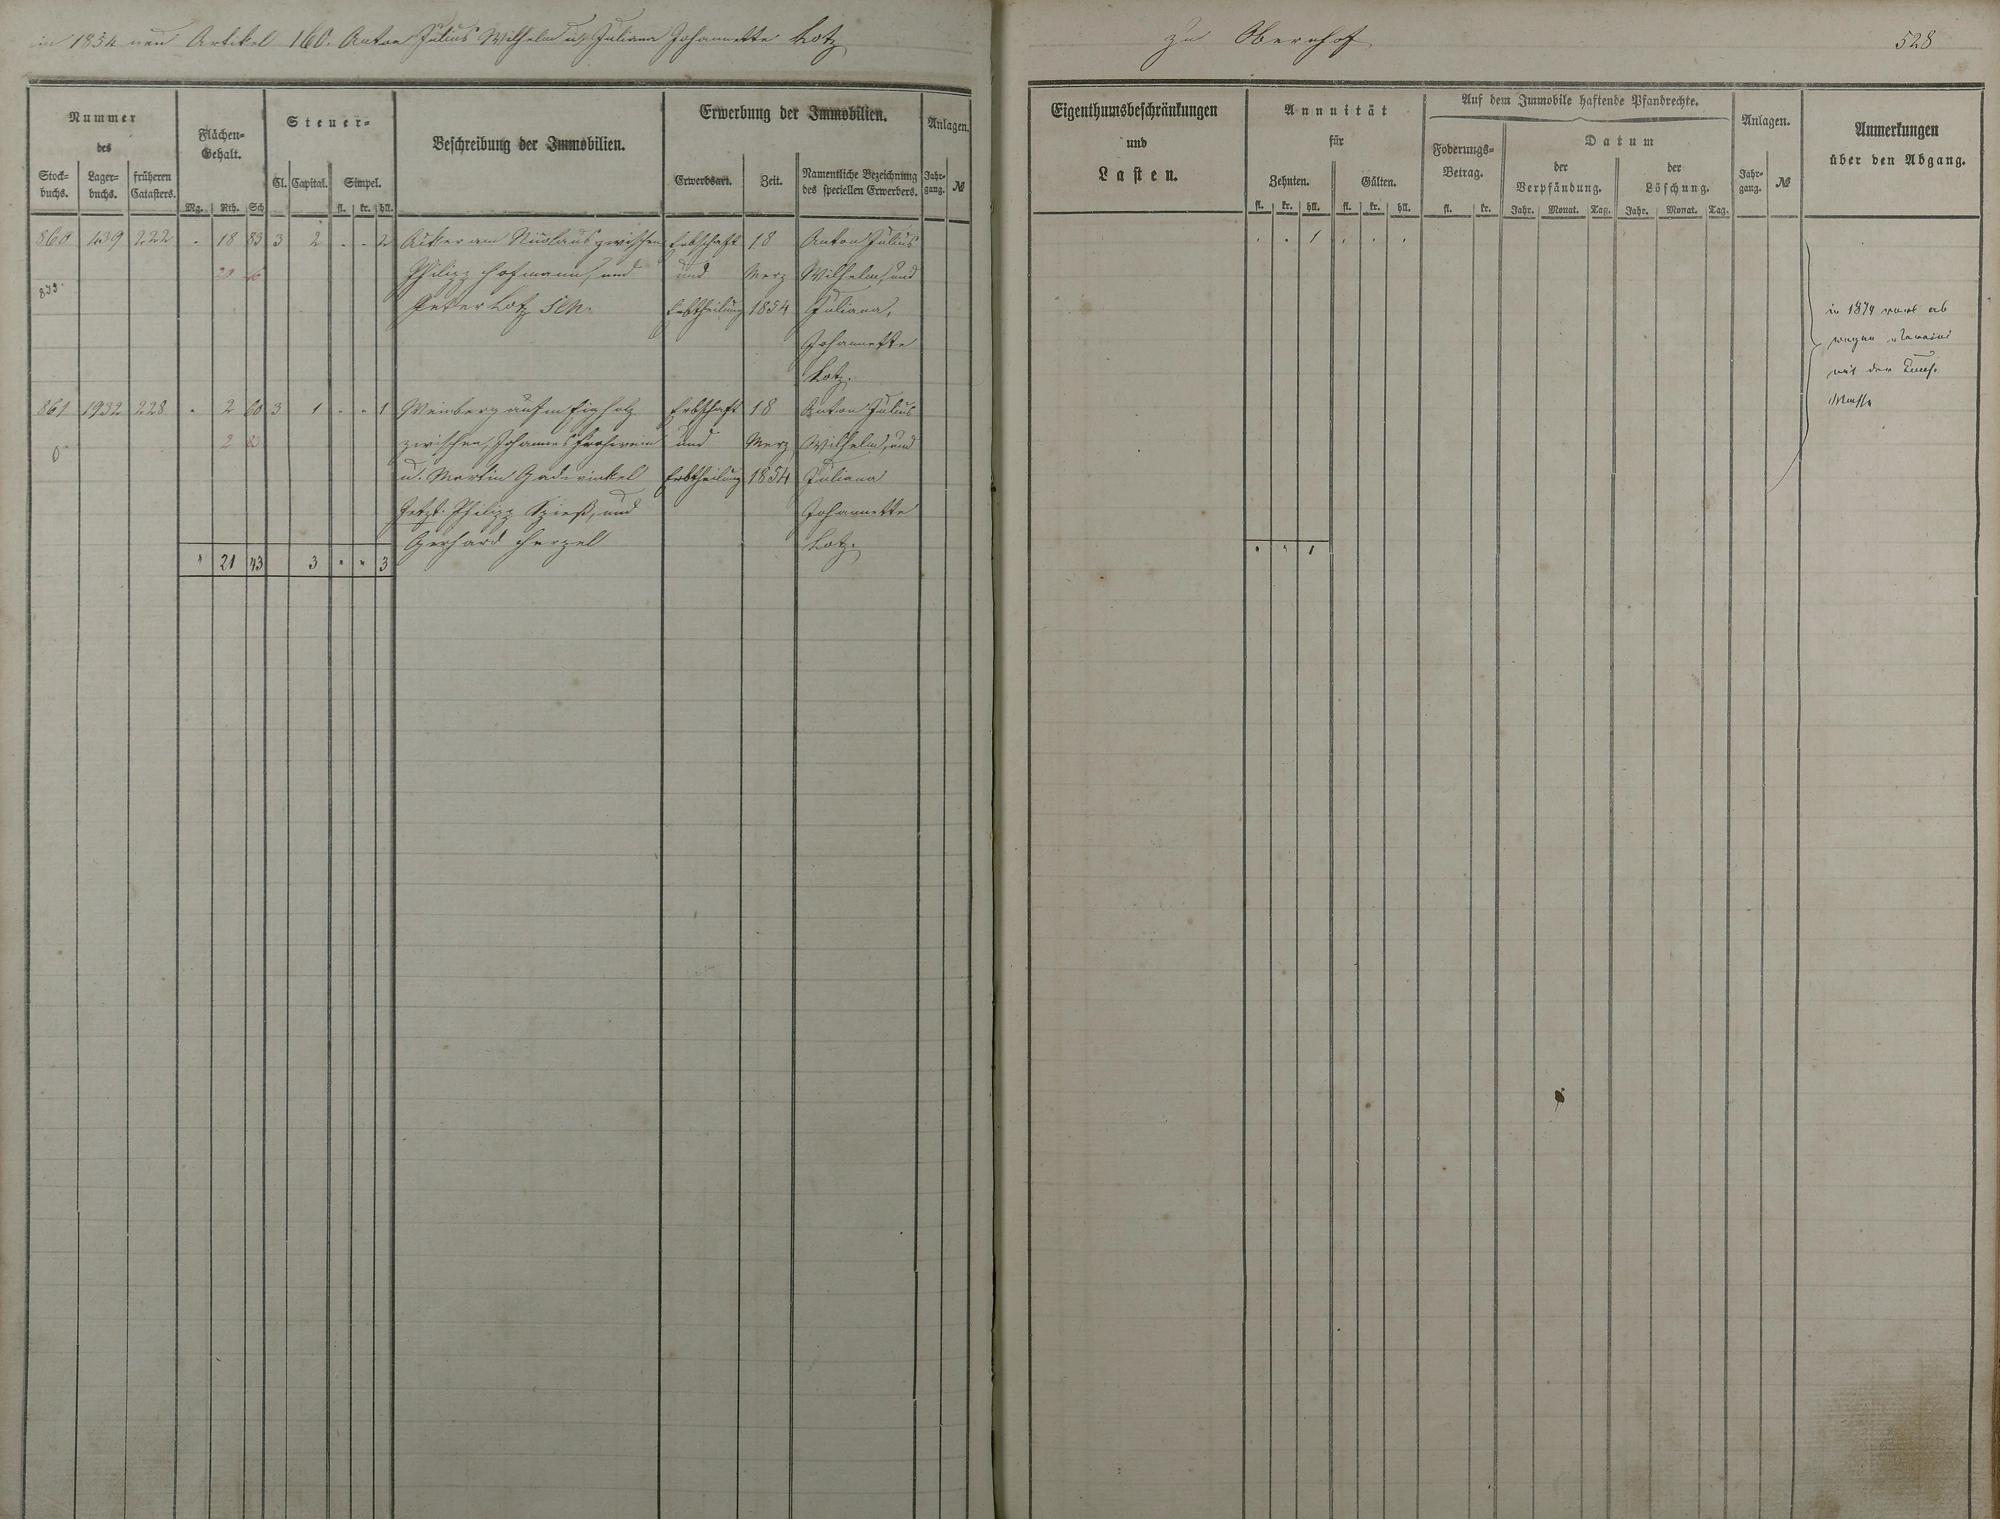 in 1854 neu Artikel 160. Anton Julius Wilhelm u. Juliana Johannette Lotz
zu Obernhof
528
Nummer
des
Stock-
buchs.
Lager-
buchs.
früheren
Catasters.
Flächen-
Gehalt.
Mg. Rth. Sch
Steuer-
Cl. Capital. Simpel.
fl. kr. hll.
Beschreibung der Immobilien.
Erwerbung der Immobilien.
Erwerbsart. Zeit.
Namentliche Bezeichnung
des speciellen Erwerbers.
Anlagen.
Jahr-
gang.
№
Eigenthumsbeschränkungen
und
Lasten.
Annuität
für
Zehnten. Gülten.
fl. kr. hll. fl. kr. hll.
Auf dem Immobile haftende Pfandrechte.
Foderungs-
Betrag.
fl. kr.
Datum
der
Verpfändung.
der
Löschung.
Jahr. Monat. Tag. Jahr. Monat. Tag.
Anlagen.
Jahr-
gang.
№
Anmerkungen
über den Abgang.
860 439 222 " 18 83 3 2 " " 2 Acker am Niclaus zwischen Erbschaft 18 Anton Julius
Philipp Hofmann, und und Merz Wilhelm, und
Peter Lotz sen. Erbtheilung 1854 Juliana,
Johannette
Lotz.
861 1932 228 " 2 60 3 1 " " 1 Weinberg aufm Erbschaft 18 Anton Julius
zwischen Johannes und Merz Wilhelm, und
u. Martin Erbtheilung 1854 Juliana
Jetzt. Philipp Spieß, und Johannette
Gerhard Lotz.
" 21 43 3 " " 3
" " 1
" " 1
in 1874 ab
wegen
mit der
Masse